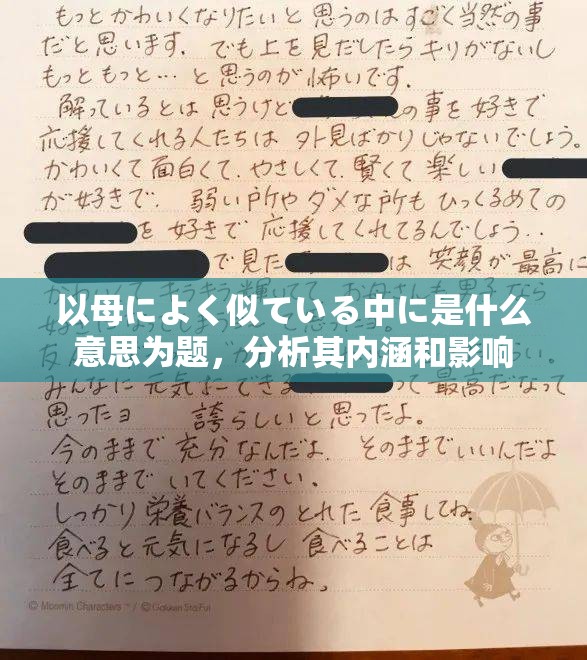 もっとかわいくなりたいと思うのはすごく当然の事
だと思います。でも上を見だしたらキリがないし
もっともっと…と思うのが怖いです。
解っているとは思うけど の事を好きで
応援してくれる人たちは外見ばかりじゃないでしょう。
かわいくて面白くて、やさしくて、賢くて楽しい
が好きで、弱い所やダメな所もひっくるめての
を好きで応援してくれてるんでしょう‥
で見た は 笑顔が最高に
以母によく似ている中に是什么
意思为题，分析其内涵和影响
みんなに元気にできる って最高だなって
思ったョ 誇らしいと思ったよ。
今のままで充分なんだよ そのままでいいんだよ
そのままでいてください。
しっかり栄養バランスのとれた食事してね
食べると元気になるし食べることは
全てにつながるからね。
© Moomin Characters ™ / © Gakken Sta:Ful